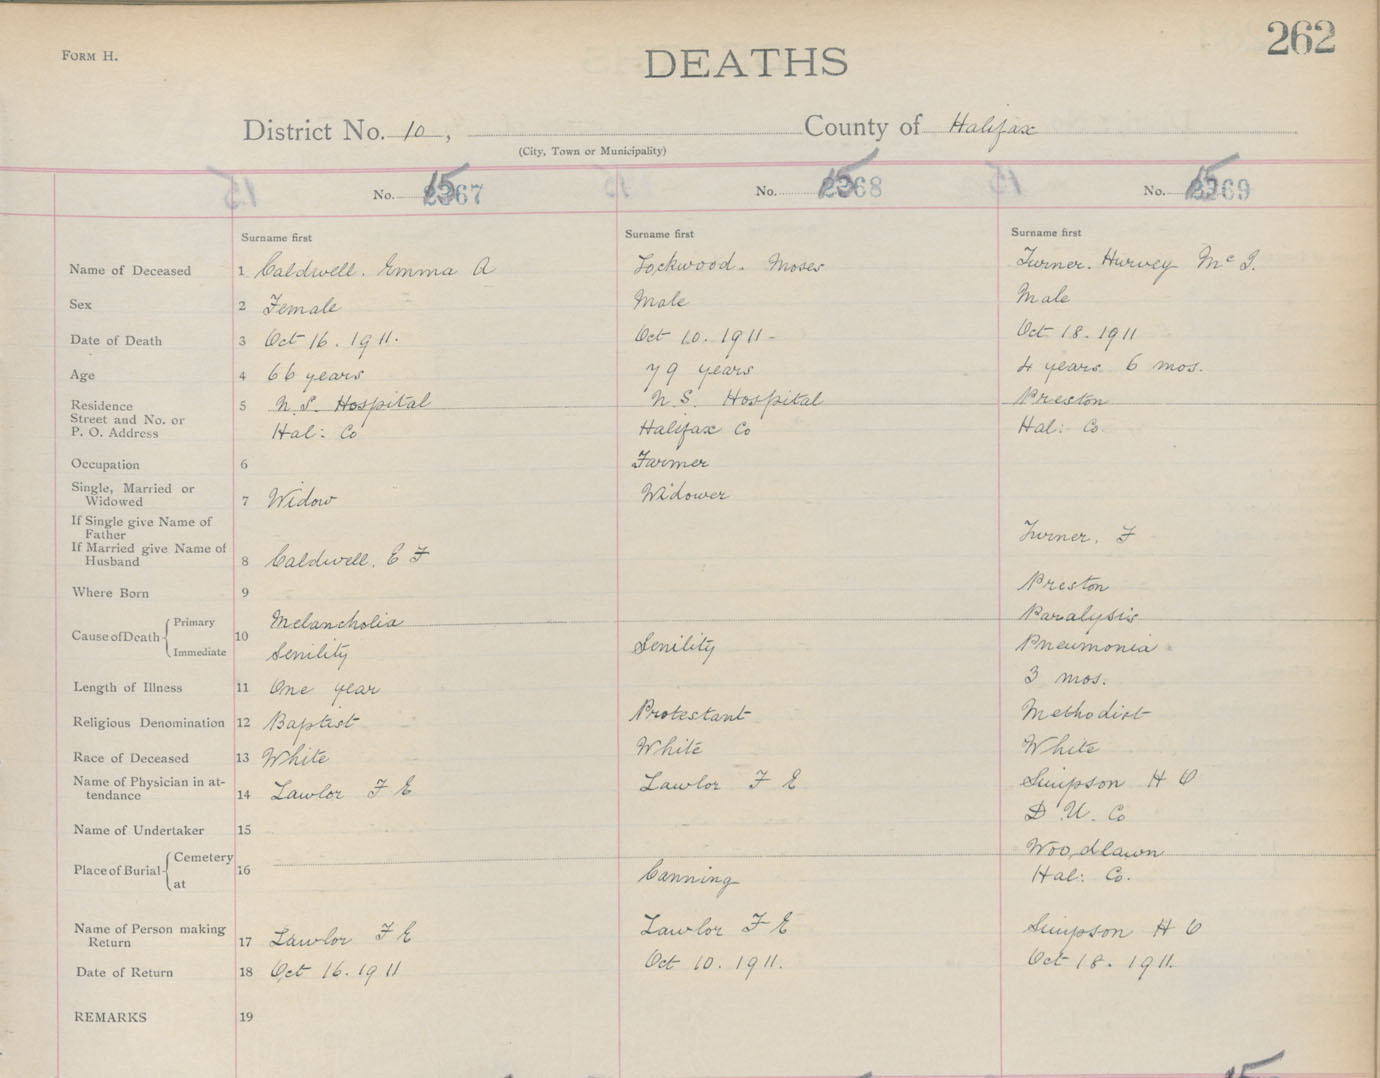 262
FORM H.
DEATHS
District No. 10, County of Halifax
(City, Town or Municipality)
No. 2367 No. 2368 No. 2369
15 15 15
Surname first Surname first Surname first
Name of Deceased 1 Caldwell. Emma A Lockwood. Moses Turner. Hurvey
Sex 2 Female Male Male
Date of Death 3 Oct 16. 1911. Oct 10. 1911 - Oct 18. 1911
Age 4 66 years 79 years 4 years 6 mos.
Residence 5 N.S. Hospital N S. Hospital Preston
Street and No. or
P. O. Address Hal: Co Halifax Co Hal: Co.
Occupation 6 Farmer
Single, Married or
Widowed 7 Widow Widower
If Single give Name of
Father Turner, F
If Married give Name of
Husband 8 Caldwell. E F
Where Born 9 Preston
Cause of Death Primary 10 Melancholia Paralysis
Immediate Senility Senility Pneumonia
Length of Illness 11 One year 3 mos.
Religious Denomination 12 Baptist Protestant Methodist
Race of Deceased 13 White White White
Name of Physician in at-
tendance 14 Lawlor F E Lawlor F E Simpson H O
Name of Undertaker 15 D U. Co
Place of Burial Cemetery 16 Woodlawn
at Canning Hal: Co.
Name of Person making
Return 17 Lawlor F E Lawlor F E Simpson H O
Date of Return 18 Oct 16. 1911 Oct 10. 1911. Oct 18. 1911.
REMARKS 19
15